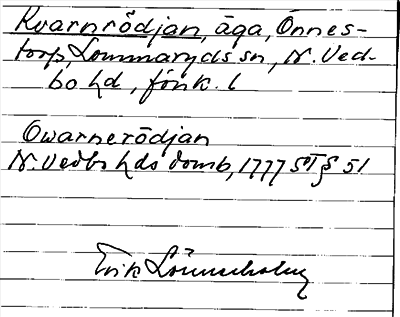 Kvarnrödjan, äga, Önnes-
torp Lommaryds sn, N. Ved-
bo hd, Jönk. l
Qwarnerödjan
N. Vedbo hds domb, 1777 ST § 51
Erik